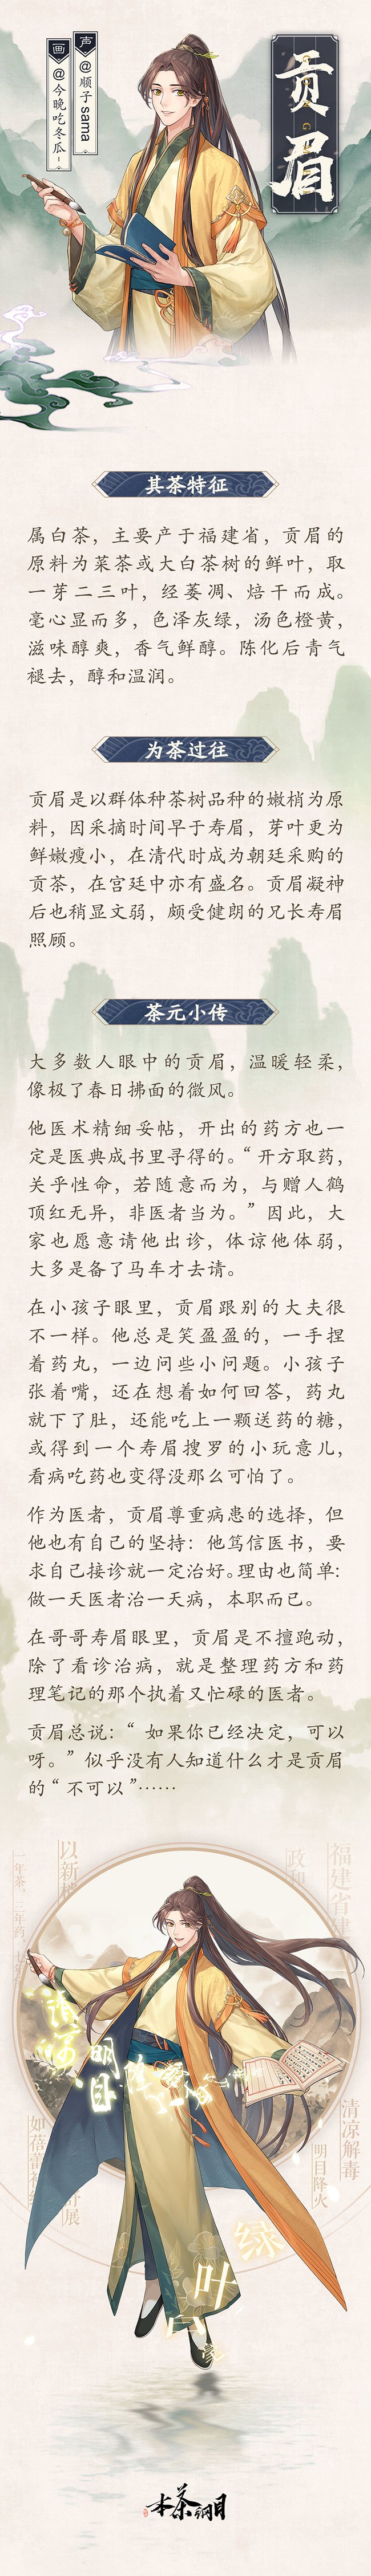 画
@今晚吃冬瓜-
声
@顺子sama
贡眉
其茶特征
属白茶，主要产于福建省，贡眉的
原料为菜茶或大白茶树的鲜叶，取
一芽二三叶，经萎凋、焙干而成。
毫心显而多，色泽灰绿，汤色橙黄，
滋味醇爽，香气鲜醇。陈化后青气
褪去，醇和温润。
为茶过往
贡眉是以群体种茶树品种的嫩梢为原
料，因采摘时间早于寿眉，芽叶更为
鲜嫩瘦小，在清代时成为朝廷采购的
贡茶，在宫廷中亦有盛名。贡眉凝神
后也稍显文弱，颇受健朗的兄长寿眉
照顾。
茶元小传
大多数人眼中的贡眉，温暖轻柔，
像极了春日拂面的微风。
他医术精细妥帖，开出的药方也一
定是医典成书里寻得的。“开方取药，
关乎性命，若随意而为，与赠人鹤
顶红无异，非医者当为。”因此，大
家也愿意请他出诊，体谅他体弱，
大多是备了马车才去请。
在小孩子眼里，贡眉跟别的大夫很
不一样。他总是笑盈盈的，一手捏
着药丸，一边问些小问题。小孩子
张着嘴，还在想着如何回答，药丸
就下了肚，还能吃上一颗送药的糖，
或得到一个寿眉搜罗的小玩意儿，
看病吃药也变得没那么可怕了。
作为医者，贡眉尊重病患的选择，但
他也有自己的坚持：他笃信医书，要
求自己接诊就一定治好。理由也简单：
做一天医者治一天病，本职而已。
在哥哥寿眉眼里，贡眉是不擅跑动，
除了看诊治病，就是整理药方和药
理笔记的那个执着又忙碌的医者。
贡眉总说：“如果你已经决定，可以
呀。”似乎没有人知道什么才是贡眉
的“不可以”……
一年茶，三年药，
以新
政和
福建省建
明目
清凉解毒
明目降火
如蓓蕾初
舒展
绿
叶
本茶纲目